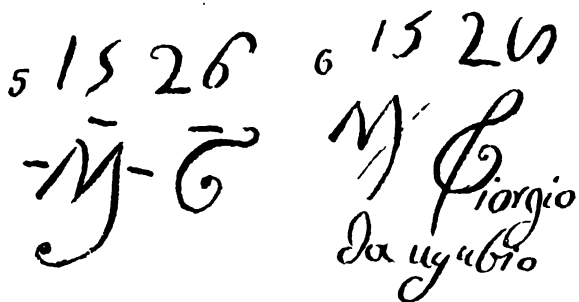 5 1526
-M̄- Ḡ
6
M Giorgio
da ugubio